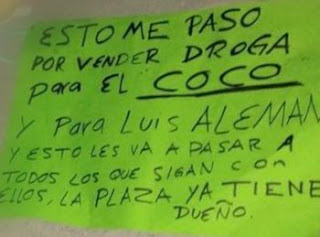 ESTO ME PASO
POR VENDER DROGA
para EL COCO
Y Para LUIS ALEMAN
Y ESTO LES VA A PASAR A
TODOS LOS QUE SIGAN CON
ELLOS, LA PLAZA YA TIENE
DUEÑO.